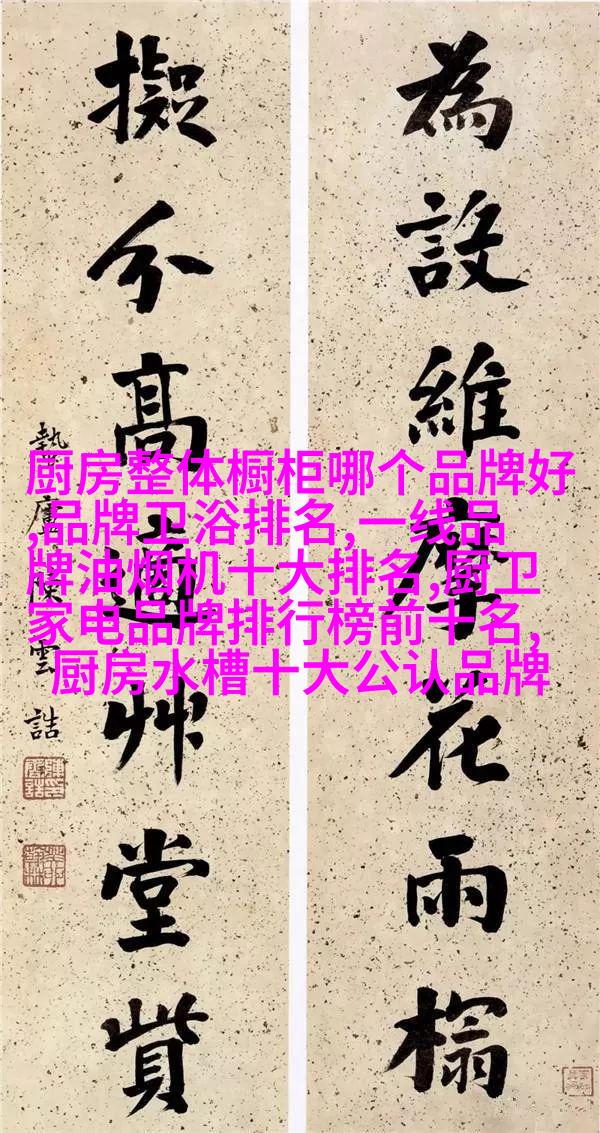 為設維摩花雨榻
擬分高適艸堂貲
蟄廬陳雲誥
厨房整体橱柜哪个品牌好
,品牌卫浴排名,一线品
牌油烟机十大排名,厨卫
家电品牌排行榜前十名,
厨房水槽十大公认品牌